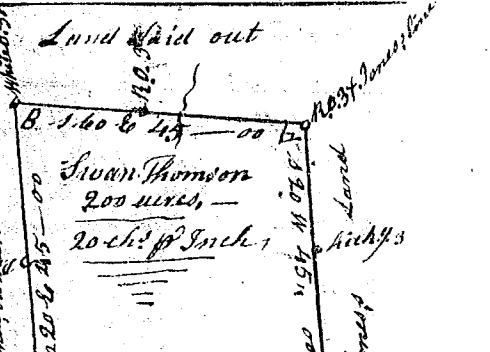 Land Laid out
White O. 3x
R.O. 3
R.O. 3x Jones's line
B S 60 E 45—00
Swan Thomson
200 acres,—
20 chs. pr Inch,
S 20 W 45
Land
Hicky. 3
20 E 45—00